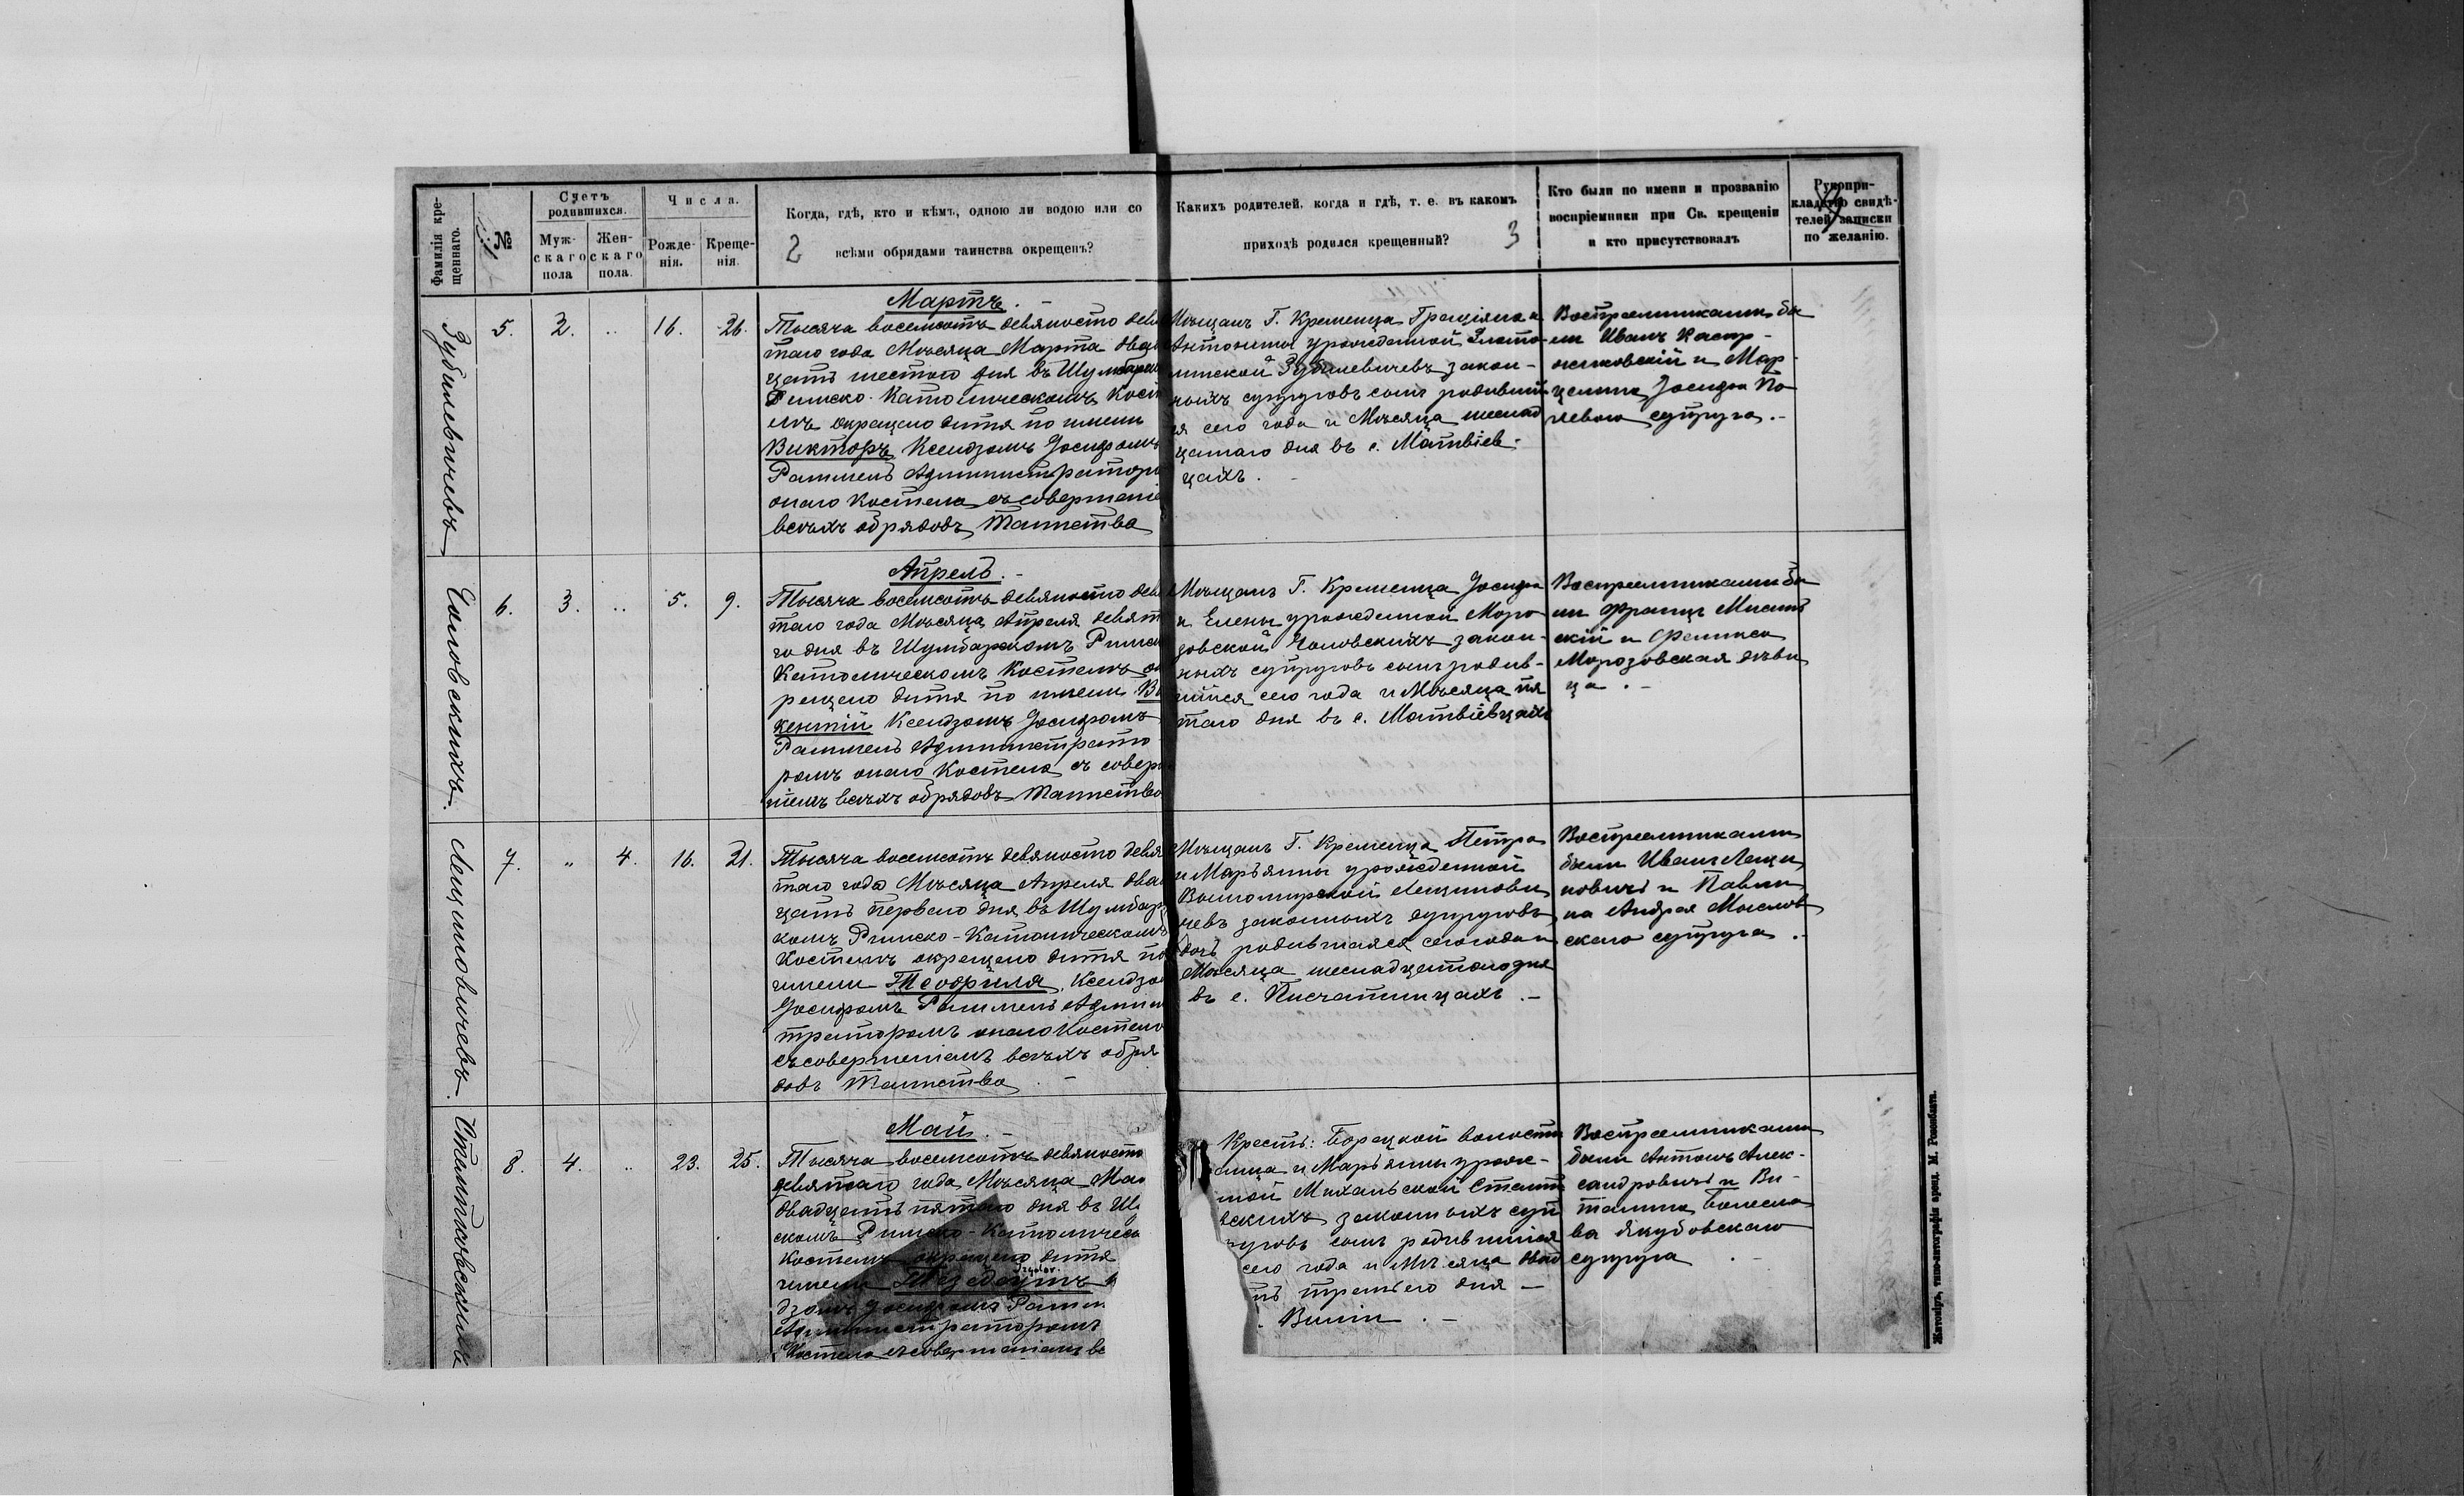 Фамилія кре-
щеннаго.
№
Счетъ
родившихся.
Муж-
скаго
пола
Жен-
скаго
пола.
Числа.
Рожде-
нія.
Креще-
нія.
Когда, гдѣ, кто и кѣмъ, одною ли водою или со
2 всѣми обрядами таинства окрещенъ?
Какихъ родителей, когда и гдѣ, т. е. въ какомъ
приходѣ родился крещенный? 3
Кто были по имени и прозванію
воспріемники при Св. крещеніи
и кто присутствовалъ
Рукопри-
кладство свидѣ-
телей записки
по желанію.
Зубилевичевъ
5. 2. „ 16. 26.
Мартъ. -
Тысяча восемсотъ девяносто девя
таго года Мѣсяца Марта двад
цать шестого дня въ Шумбарск
Римско-Католическомъ Кост
елѣ окрещено дитя по имени
Викторъ Ксендзомъ Іосифомъ
Раммель Администраторо
онаго Костела съ совершеніе
всѣхъ обрядовъ Таинства
Мѣщанъ Г. Кременца Граціяна и
Антонины урожденной
Зубилевичевъ закон-
ныхъ супруговъ сынъ родивший
ся сего года и Мѣсяца шеснад
цатаго дня въ с. Матвіев-
цахъ. -
Воспреемниками бы
ли Иванъ Каспр-
жиковскій и Мар-
целина Іосифа По
левого супруга. -
6. 3. „ 5. 9.
Апрель. -
Тысяча восемсотъ девяносто девя
таго года Мѣсяца Апреля девят
го дня въ Шумбарскомъ Римск
Католическомъ Костелѣ ок
рещено дитя по имени Ви
кентій Ксендзомъ Іосифомъ
Раммель Администрато
ромъ онаго Костела съ совер
ніемъ всѣхъ обрядовъ Таинства
Мѣщанъ Г. Кременца Іосифа
и Елены урожденной Моро
зовской закон-
ныхъ супруговъ сынъ родив-
шійся сего года и Мѣсяца пя
таго дня въ с. Матвіевцахъ
Воспреемниками бы
ли Францъ
скій и Феликса
Морозовская дѣви
ца. -
Лещиновичевъ.
7. „ 4. 16. 21.
Тысяча восемсотъ девяносто девя
таго года Мѣсяца Апреля двад
цать перваго дня въ Шумбарс
комъ Римско-Католическомъ
Костелѣ окрещено дитя по
имени Теофиля, Ксендзо
Іосифомъ Раммель Админи
траторомъ онаго Костела
съ совершеніемъ всѣхъ обря
довъ Таинства. -
Мѣщанъ Г. Кременца Петра
и Марьянны урожденной
Лещинови
чевъ законныхъ супруговъ
дочь родившаяся сего года и
Мѣсяца шеснадцатого дня
въ с. Писчатинцахъ. -
Воспреемниками
были Иванъ Лещи
новичъ и Павли
на Андрея Мыслов
скаго супруга.
8. 4. „ 23. 25.
Май. -
Тысяча восемсотъ девяносто
девятаго года Мѣсяца Мая
двадцать пятаго дня въ Шу
скомъ Римско-Католическ
Костелѣ окрещено дитя
имени
дзомъ Іосифомъ Рамм
Администраторомъ
Костела съ совершеніемъ вс
Крестъ: Борецкой волости
и Марьянны урож-
ной Михальской
скихъ законныхъ суп
руговъ сынъ родившійся
сего года и Мѣсяца двад
ть третьего дня -
Воспреемниками
были Антонъ Алек-
сандровичъ и Ви-
талина Болесла
ва Якубовскаго
супруга.
Житоміръ, типо-литографія аренд. М. Розенблата.